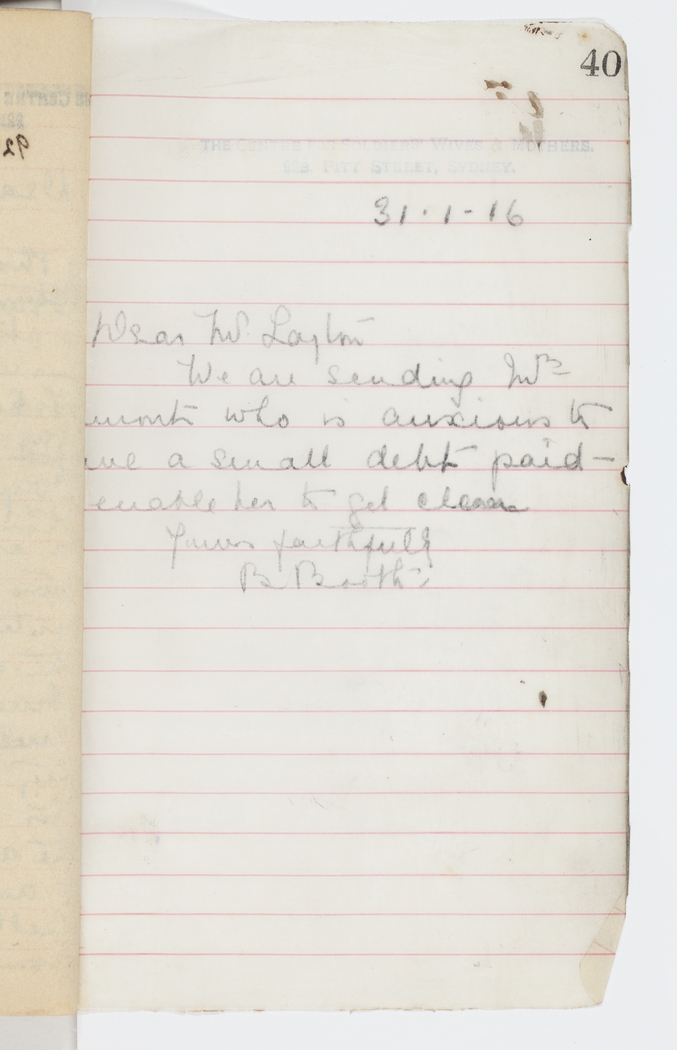 40
THE CENTRE FOR SOLDIERS' WIVES & MOTHERS.
PITT STREET, SYDNEY.
92
31.1-16
Dear Mr Layton
We are sending Mrs
who is anxious to
a small debt paid -
enable her to get clear
Yours faithfully
B Booth